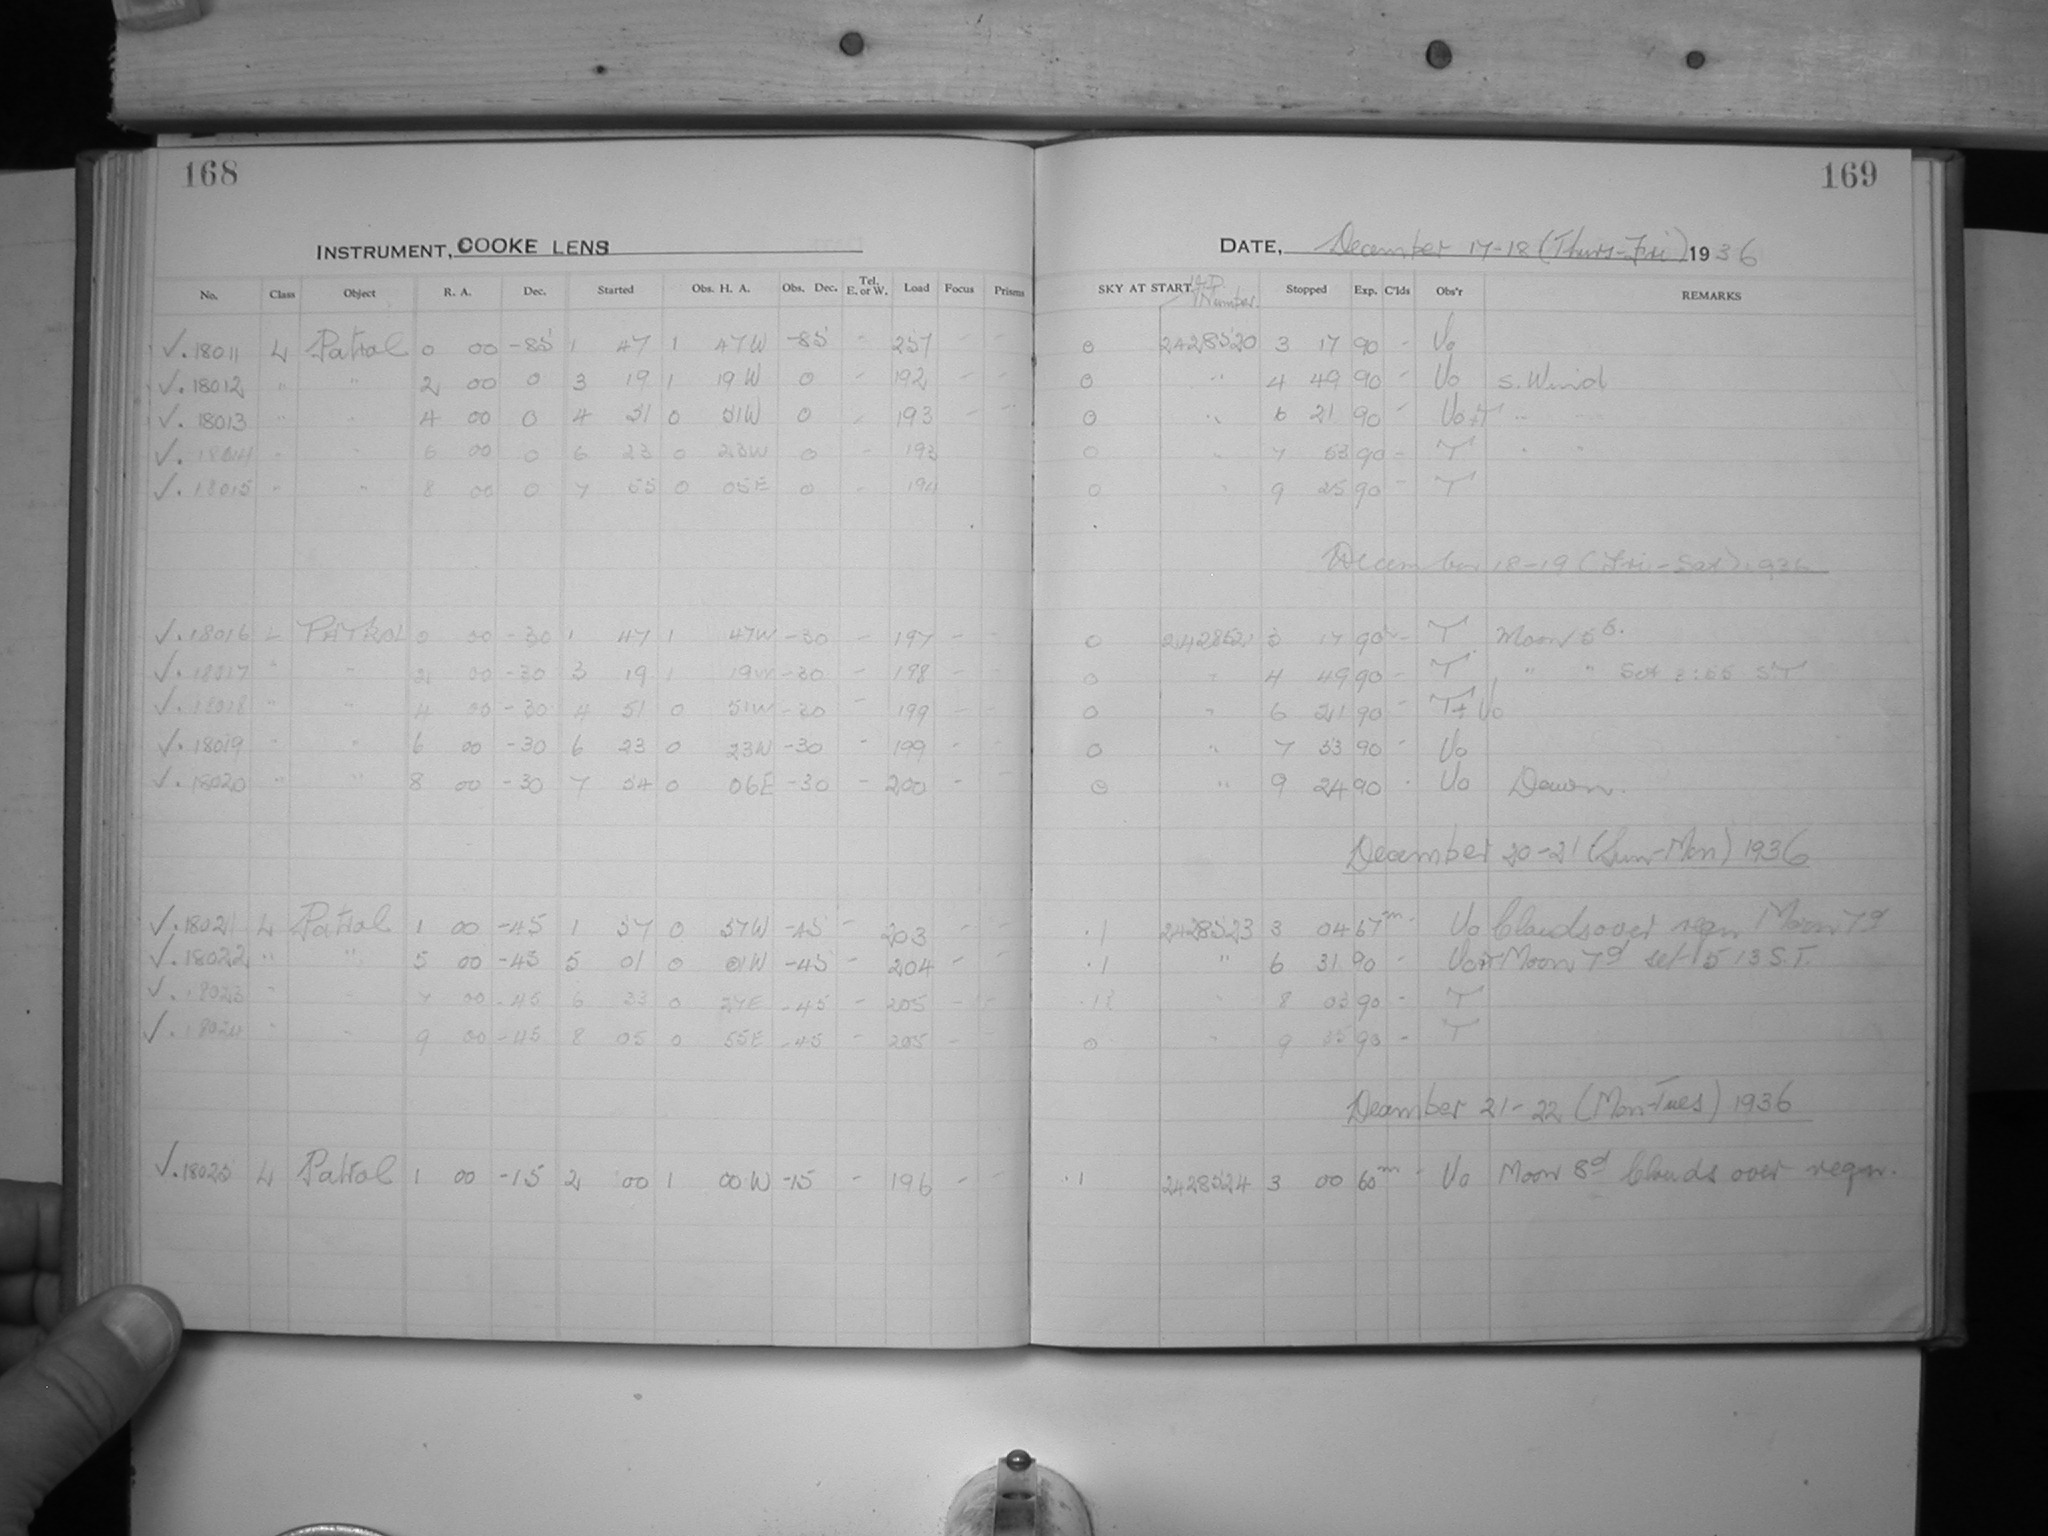 168
169
INSTRUMENT, COOKE LENS
DATE, December 17-18 (Thurs-Fri) 1936
No. Class Object R. A. Dec. Started Obs. H. A. Obs. Dec. Tel. E. or W. Load Focus Prisms SKY AT START J.D. Number Stopped Exp. C'lds Obs'r REMARKS
√. 18011 L Patrol 0 00 -85 1 47 1 47W -85 - 257 - - 0 2428520 3 17 90 - Vo
√. 18012 " " 2 00 0 3 19 1 19W 0 - 192 - - 0 " 4 49 90 - Vo S. Wind
√. 18013 " " 4 00 0 4 51 0 51W 0 - 193 - - 0 " 6 21 90 - Vo+T " "
√. 18014 " " 6 00 0 6 23 0 23W 0 - 193 0 " 7 53 90 - T " "
√. 18015 " " 8 00 0 7 55 0 05E 0 - 194 0 " 9 25 90 - T
December 18-19 (Fri-Sat) 1936
√. 18016 L PATROL 0 00 -30 1 47 1 47W -30 - 197 - - 0 2428521 3 17 90 - T Moon 5d.
√. 18017 " " 2 00 -30 3 19 1 19W -30 - 198 - - 0 " 4 49 90 - T " " Set 3:55 ST
√. 18018 " " 4 00 -30 4 51 0 51W -30 - 199 - - 0 " 6 21 90 - T+Vo
√. 18019 " " 6 00 -30 6 23 0 23W -30 - 199 - - 0 " 7 53 90 - Vo
√. 18020 " " 8 00 -30 7 54 0 06E -30 - 200 - - 0 " 9 24 90 - Vo Dawn.
December 20-21 (Sun-Mon) 1936
√. 18021 L Patrol 1 00 -45 1 57 0 57W -45 - 203 - - .1 2428523 3 04 67m - Vo Clouds over regn Moon 7d
√. 18022 " " 5 00 -45 5 01 0 01W -45 - 204 - - .1 " 6 31 90 - Vo+T Moon 7d set 5 13 S.T.
√. 18023 " " 7 00 -45 6 33 0 27E -45 - 205 - - " 8 03 90 - T
√. 18024 " " 9 00 -45 8 05 0 55E -45 - 205 - 0 " 9 35 90 - T
December 21-22 (Mon-Tues) 1936
√. 18025 L Patrol 1 00 -15 2 00 1 00W -15 - 196 - - .1 2428524 3 00 60m - Vo Moon 8d Clouds over regn.